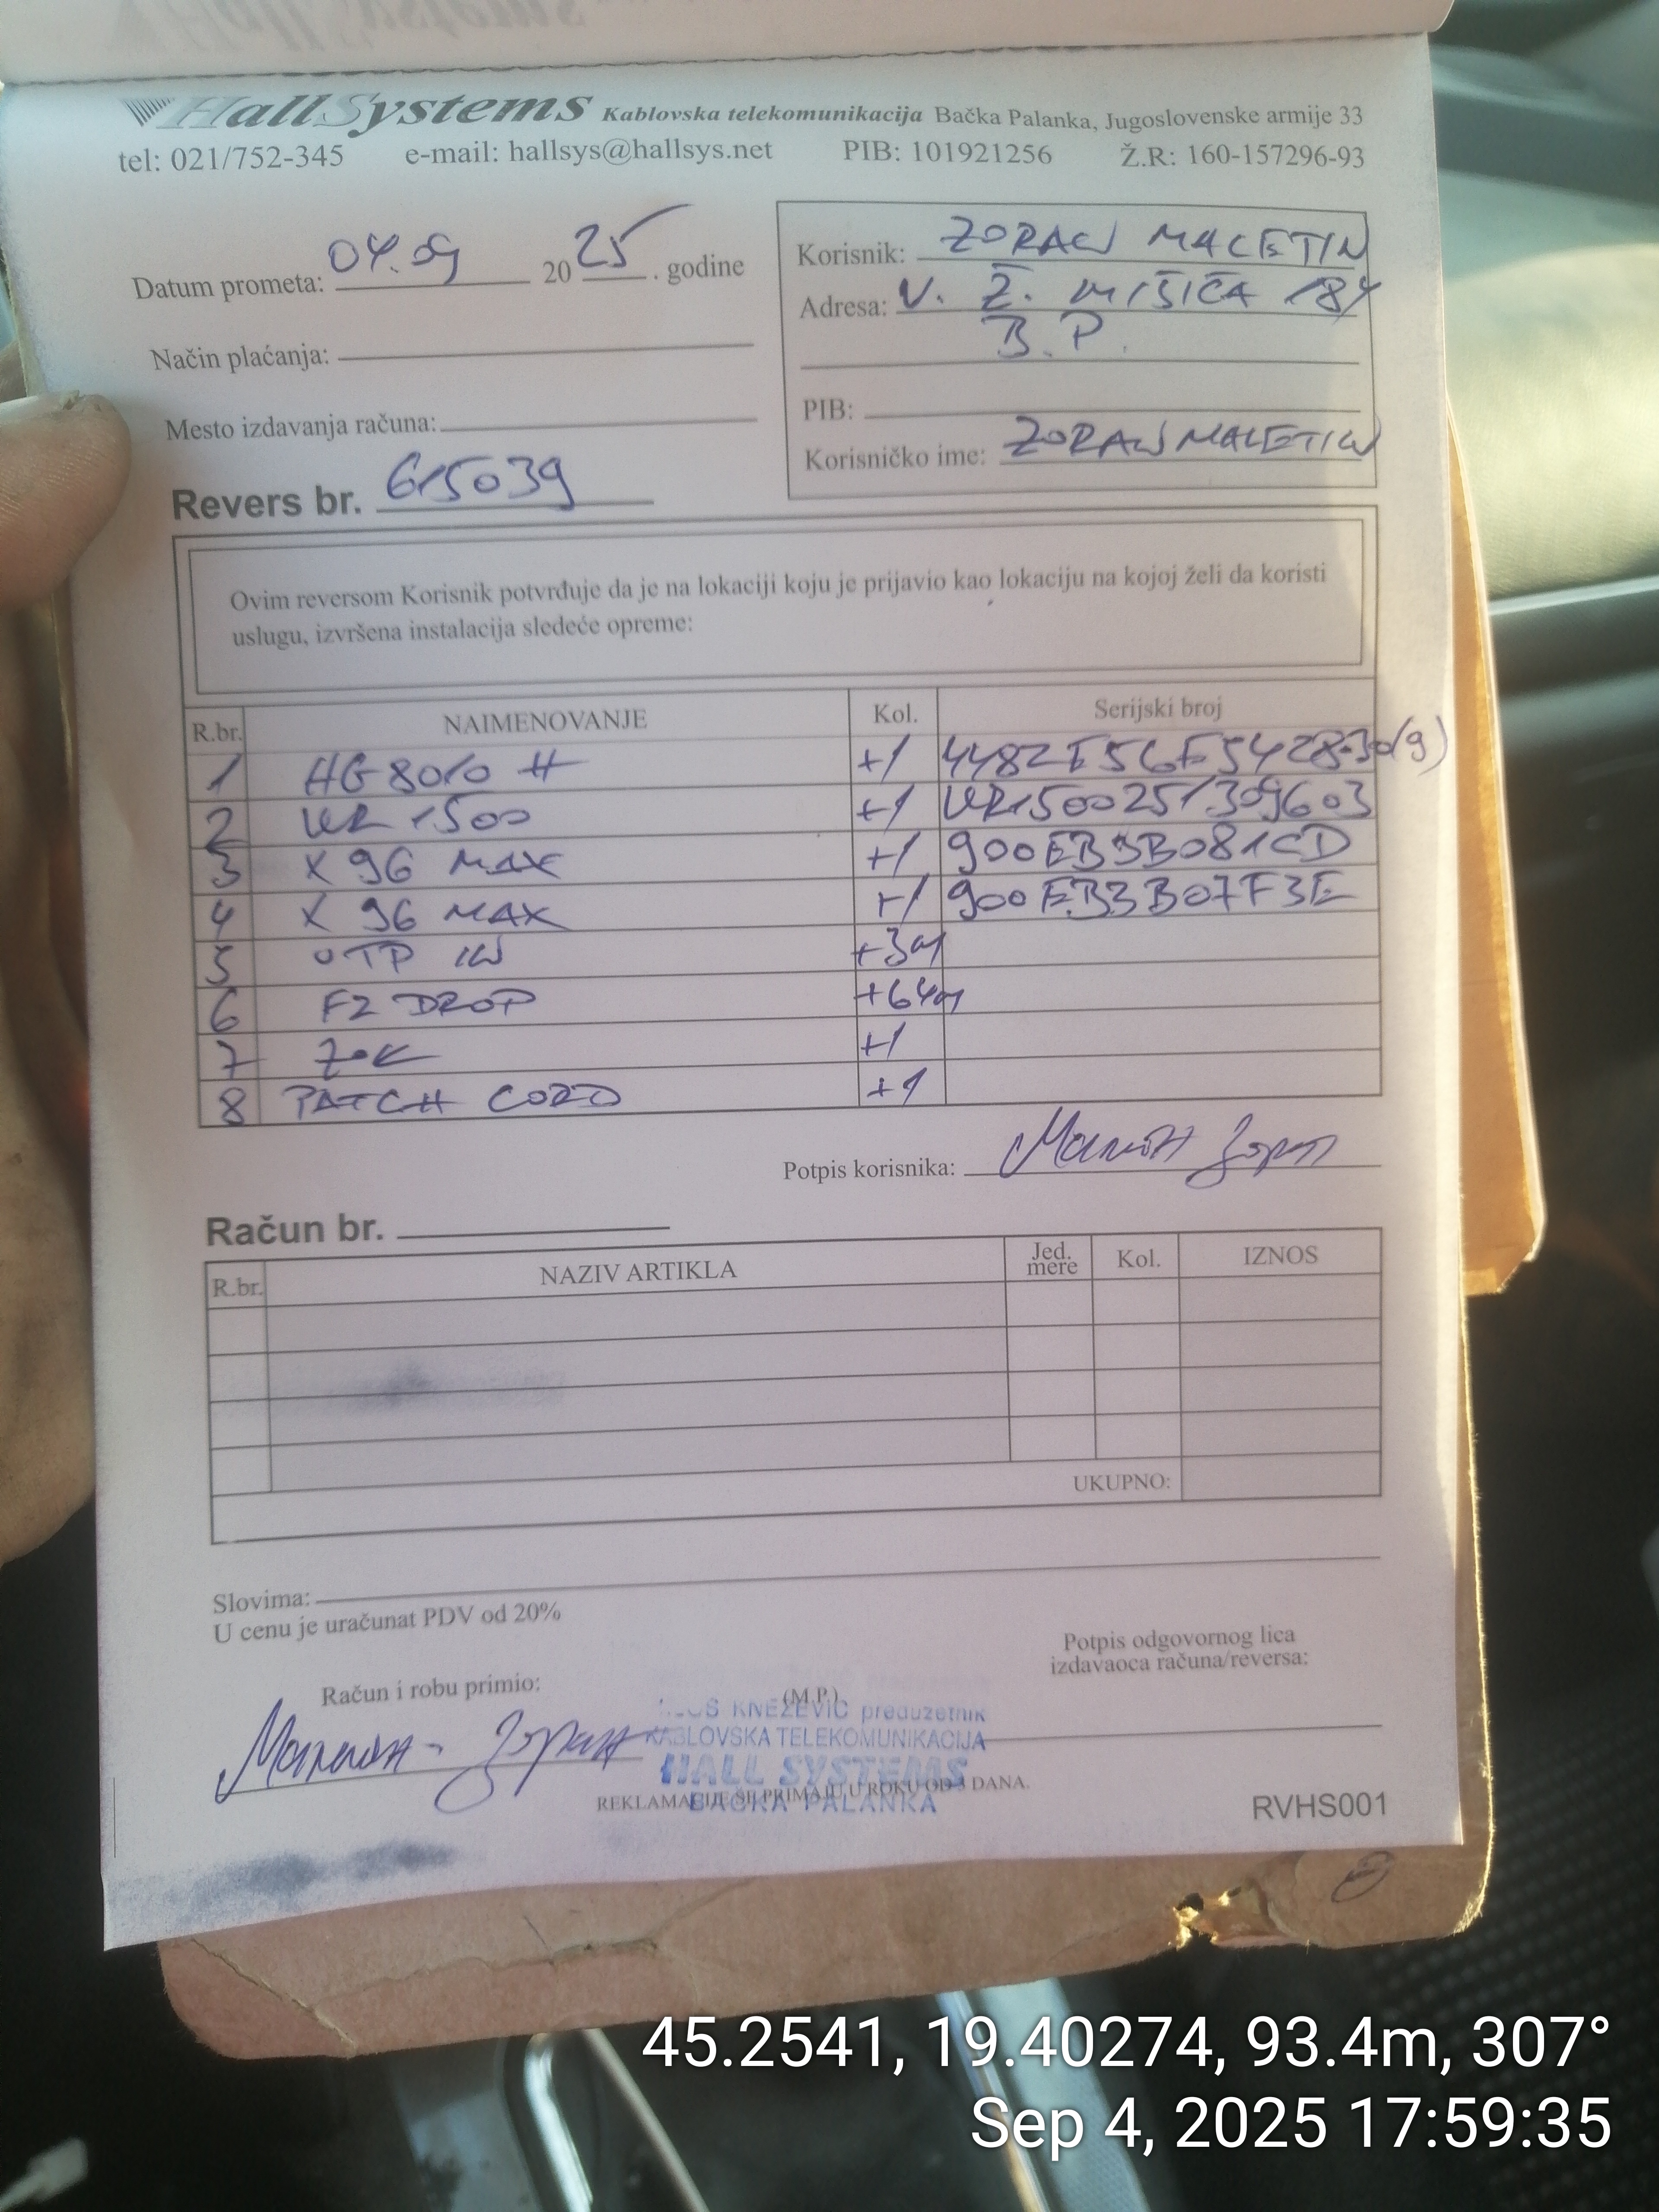 HallSystems Kablovska telekomunikacija Bačka Palanka, Jugoslovenske armije 33
tel: 021/752-345 e-mail: hallsys@hallsys.net PIB: 101921256 Ž.R: 160-157296-93
Datum prometa: 04.09 2025. godine
Način plaćanja:
Mesto izdavanja računa:
Revers br. 615039
Korisnik: ZORAN MALETIN
Adresa: V. Ž. MIŠIĆA 184
B.P.
PIB:
Korisničko ime: ZORANMALETIN
Ovim reversom Korisnik potvrđuje da je na lokaciji koju je prijavio kao lokaciju na kojoj želi da koristi
uslugu, izvršena instalacija sledeće opreme:
R.br. NAIMENOVANJE Kol. Serijski broj
1 HG 8010 H +1
2 VR 1500 +1 VR1500251309603
3 X 96 MAX +1 900EB3B081CD
4 X 96 MAX +1 900EB3B07F3E
5 OTP IN +3m
6 F2 DROP +64m
7 ZOK +1
8 PATCH CORD +1
Potpis korisnika:
Račun br.
R.br. NAZIV ARTIKLA Jed. mere Kol. IZNOS
UKUPNO:
Slovima:
U cenu je uračunat PDV od 20%
Račun i robu primio:
(M.P.)
Potpis odgovornog lica
izdavaoca računa/reversa:
KNEŽEVIĆ preduzetnik
KABLOVSKA TELEKOMUNIKACIJA
HALL SYSTEMS
BAČKA PALANKA
REKLAMACIJE SE PRIMAJU U ROKU OD 3 DANA.
RVHS001
45.2541, 19.40274, 93.4m, 307°
Sep 4, 2025 17:59:35